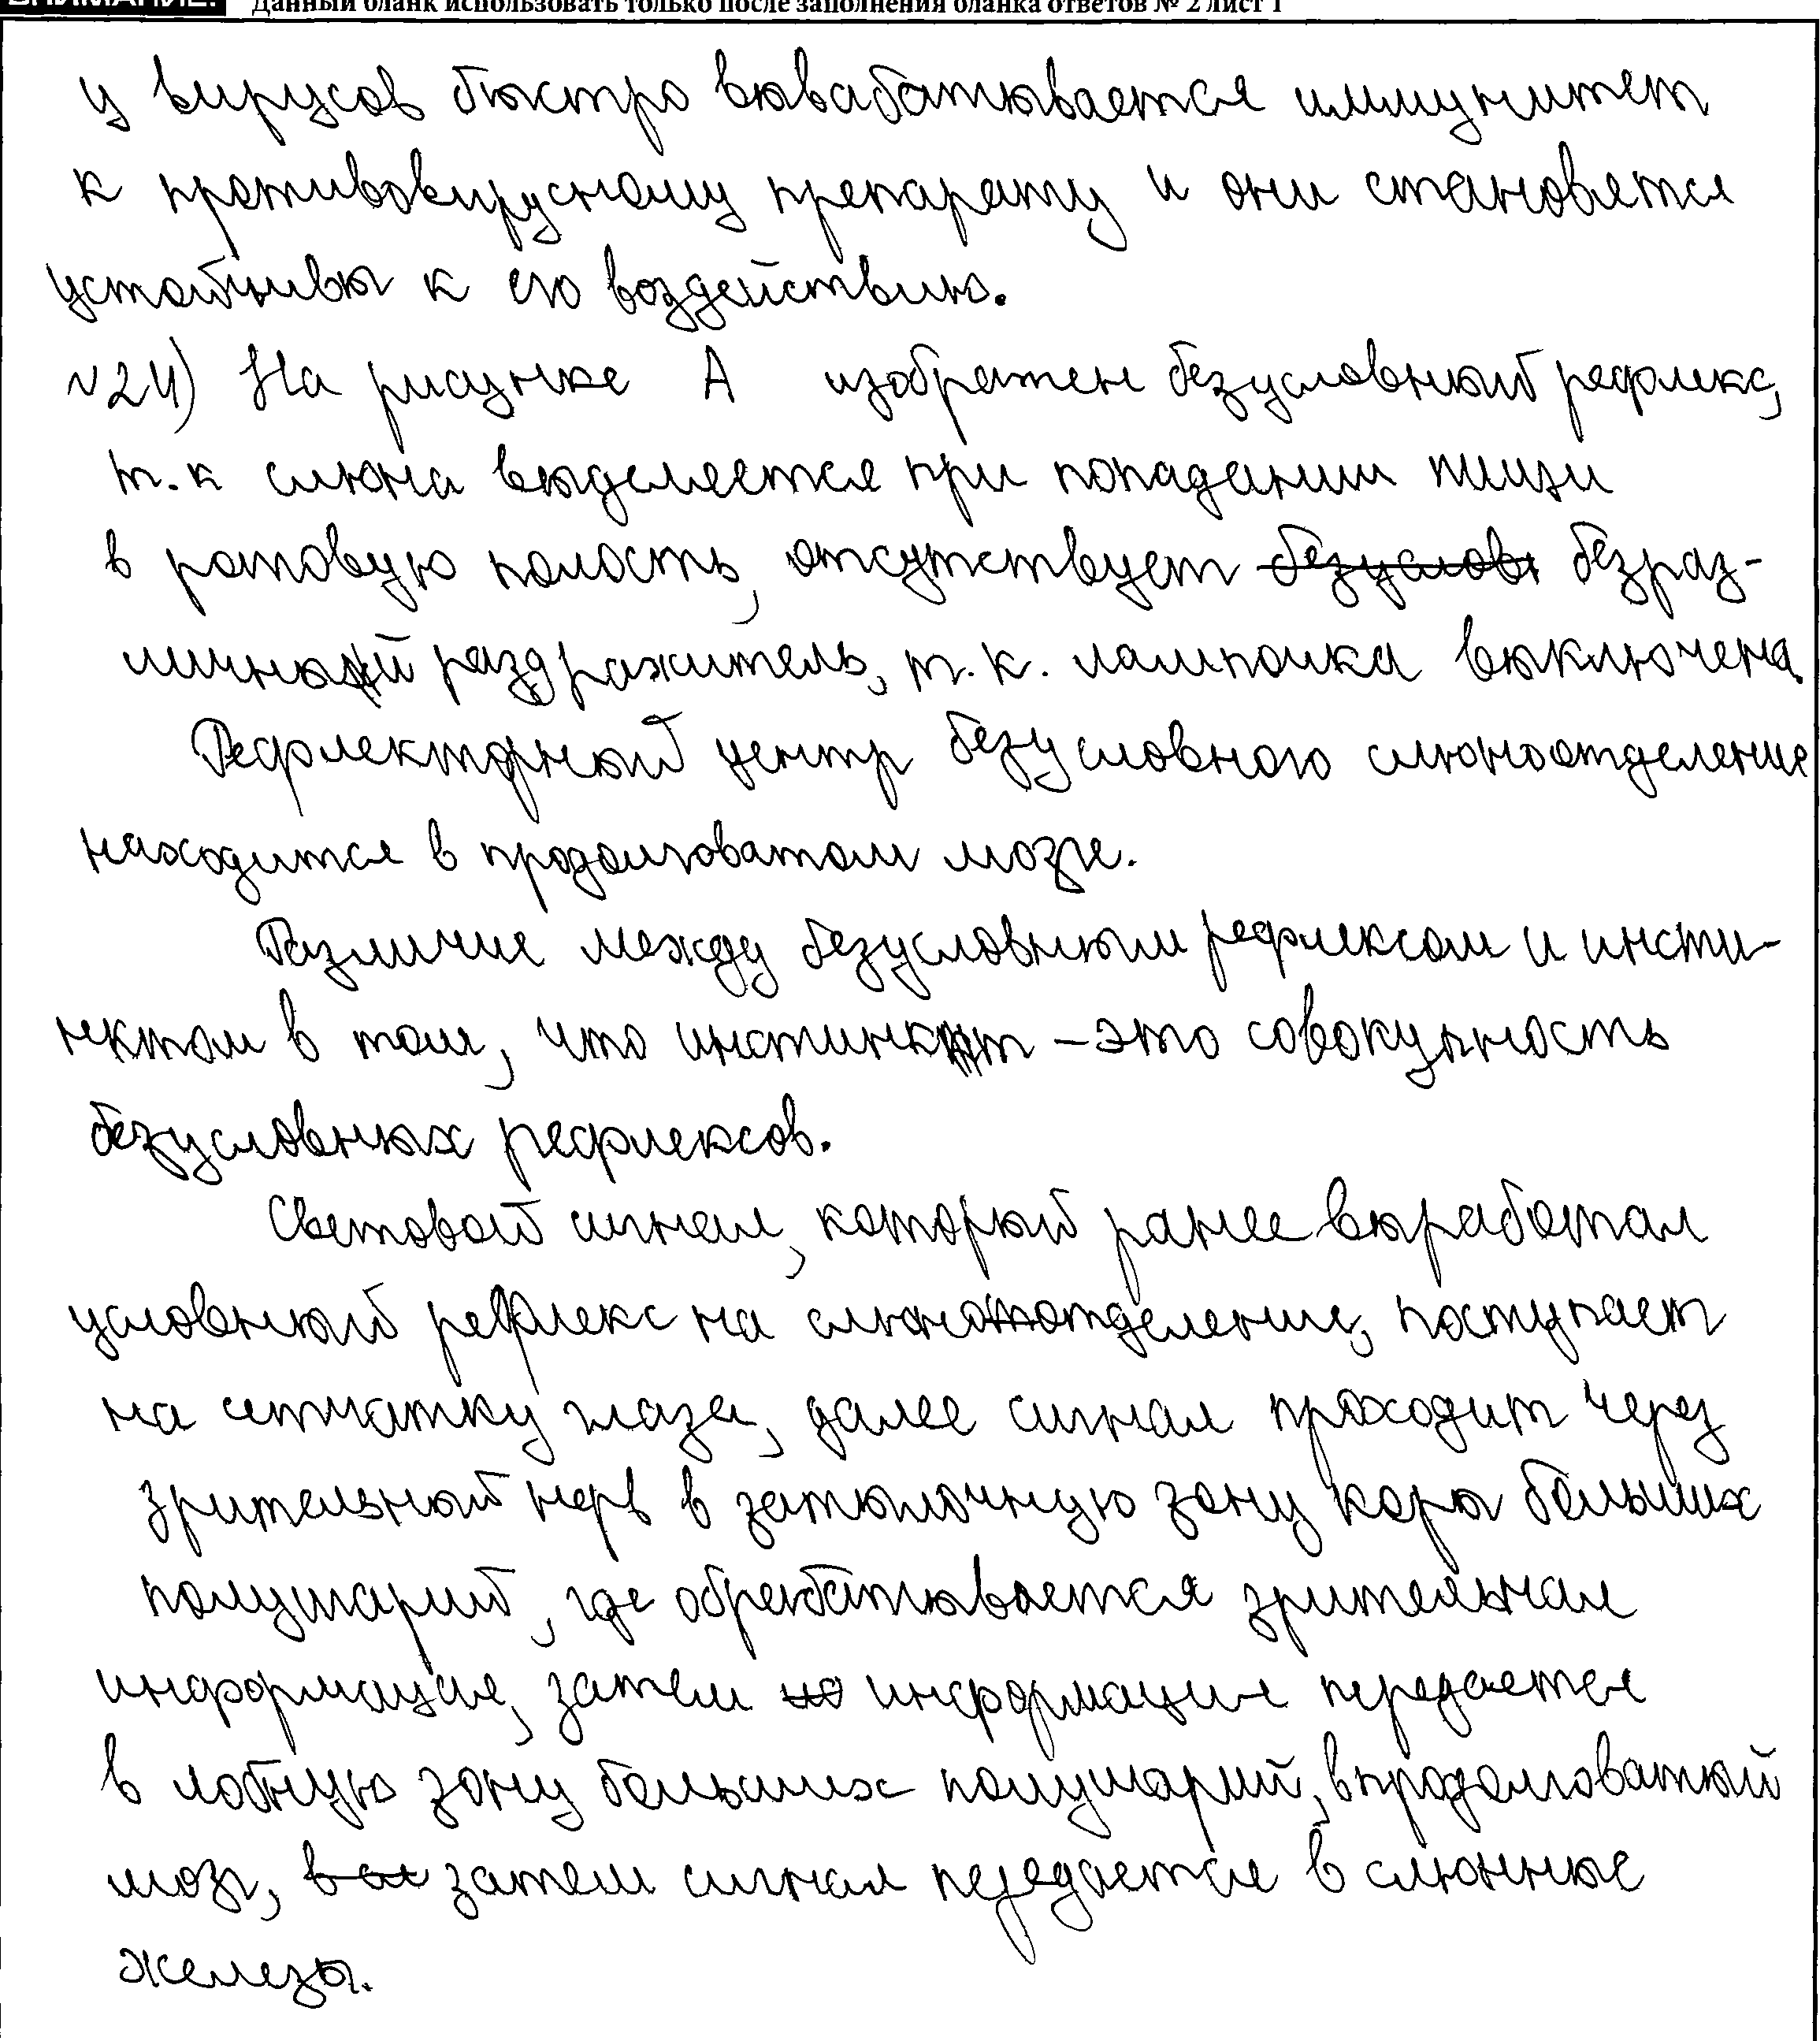 ВНИМАНИЕ! Данный бланк использовать только после заполнения бланка ответов № 2 лист 1
у вирусов быстро вывабатывается иммунитет
к противовирусному препарату и они становятся
устойчивы к его воздействию.
№24) На рисунке А изображен безусловный рефлекс,
т.к слюна выделяется при попадании пищи
в ротовую полость, отсутствует безуслов безраз-
личный раздражитель, т.к. лампочка выключена.
Рефлекторный центр безусловного слюноотделения
находится в продолговатом мозге.
Различие между безусловным рефлексом и инсти-
нктом в том, что инстинкт – это совокупность
безусловных рефлексов.
Световой сигнал, который ранее выработал
условный рефлекс на слюноотделение, поступает
на сетчатку глаза, далее сигнал проходит через
зрительный нерв в затылочную зону коры больших
полушарий, где обрабатывается зрительная
информация, затем но информация передается
в лобную зону больших полушарий, в продолговатый
мозг, затем сигнал передается в слюнные
железы.